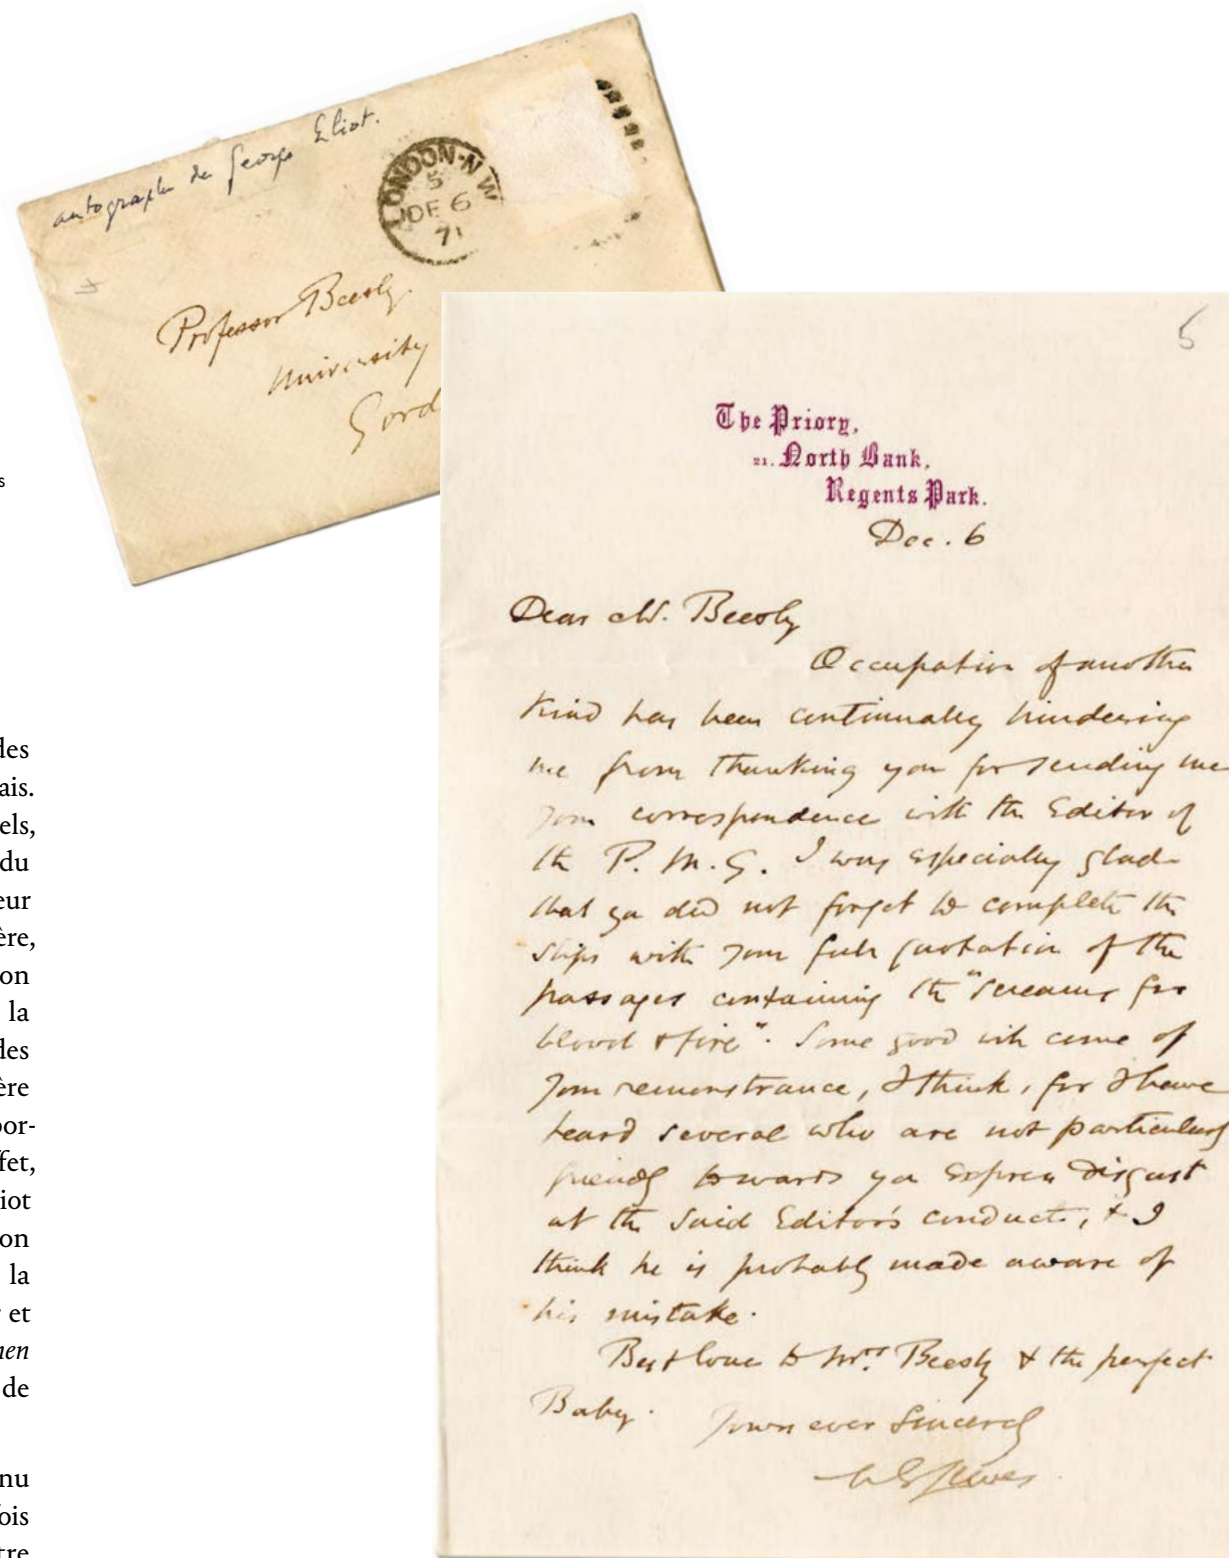 autographe de George Eliot.
LONDON-N W
5
DE 6
71
Professor Beesly.
University
Gord
s
5
The Priory,
21. North Bank,
Regents Park.
Dec. 6
Dear Mr. Beesly
Occupation of another
kind has been continually hindering
me from thanking you for sending me
your correspondence with the Editor of
the P. M. G. I was especially glad
that you did not forget to complete the
slips with your full quotation of the
passages containing the "screams for
blood & fire". Some good will come of
your remonstrance, I think, for I have
heard several who are not particularly
friendly towards you express disgust
at the said Editor's conduct, & I
think he is probably made aware of
his mistake.
Best love to Mrs. Beesly & the perfect
Baby.
Yours ever sincerely
M E Lewes
des
ais.
els,
du
eur
ère,
on
la
des
ère
por-
ffet,
iot
on
la
et
men
de
nu
ois
tre